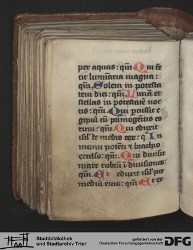 per aquas: qm̄ Qui fe
cit luminaria magna:
qm̄ Solem in potesta
tem diei: qm̄ Lunā et
stellas in potestatē noc
tis: qm̄ Qui pcussit e
giptū cū primogenitis eo
rum: qm̄ Qui eduxit
isrl de medio eor: q̄ In
manu potēti et brachio
excelso: qm̄ Qui diuisit
mare rubrū ī diuisiones:
qm̄ Et eduxit isrl per
mediū eius: qm̄ Et ex
Stadtbibliothek
und Stadtarchiv Trier
gefördert von der
Deutschen Forschungsgemeinschaft
DFG